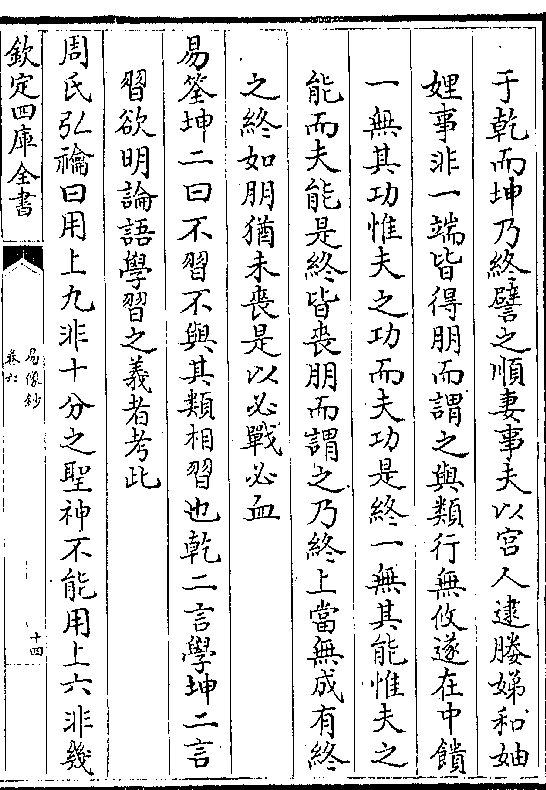 于乾而坤乃終譬之順妻事夫以宮人逮媵娣和妯
娌事非一端皆得朋而謂之與類行無攸遂在中饋
一無其功惟夫之功而夫功是終一無其能惟夫之
能而夫能是終皆喪朋而謂之乃終上當無成有終
之終如朋猶未喪是以必戰必血
易筌坤二曰不習不與其類相習也乾二言學坤二言
習欲明論語學習之義者考此
周氏弘禴曰用上九非十分之聖神不能用上六非幾
欽定四庫全書
易像鈔
卷六
十四